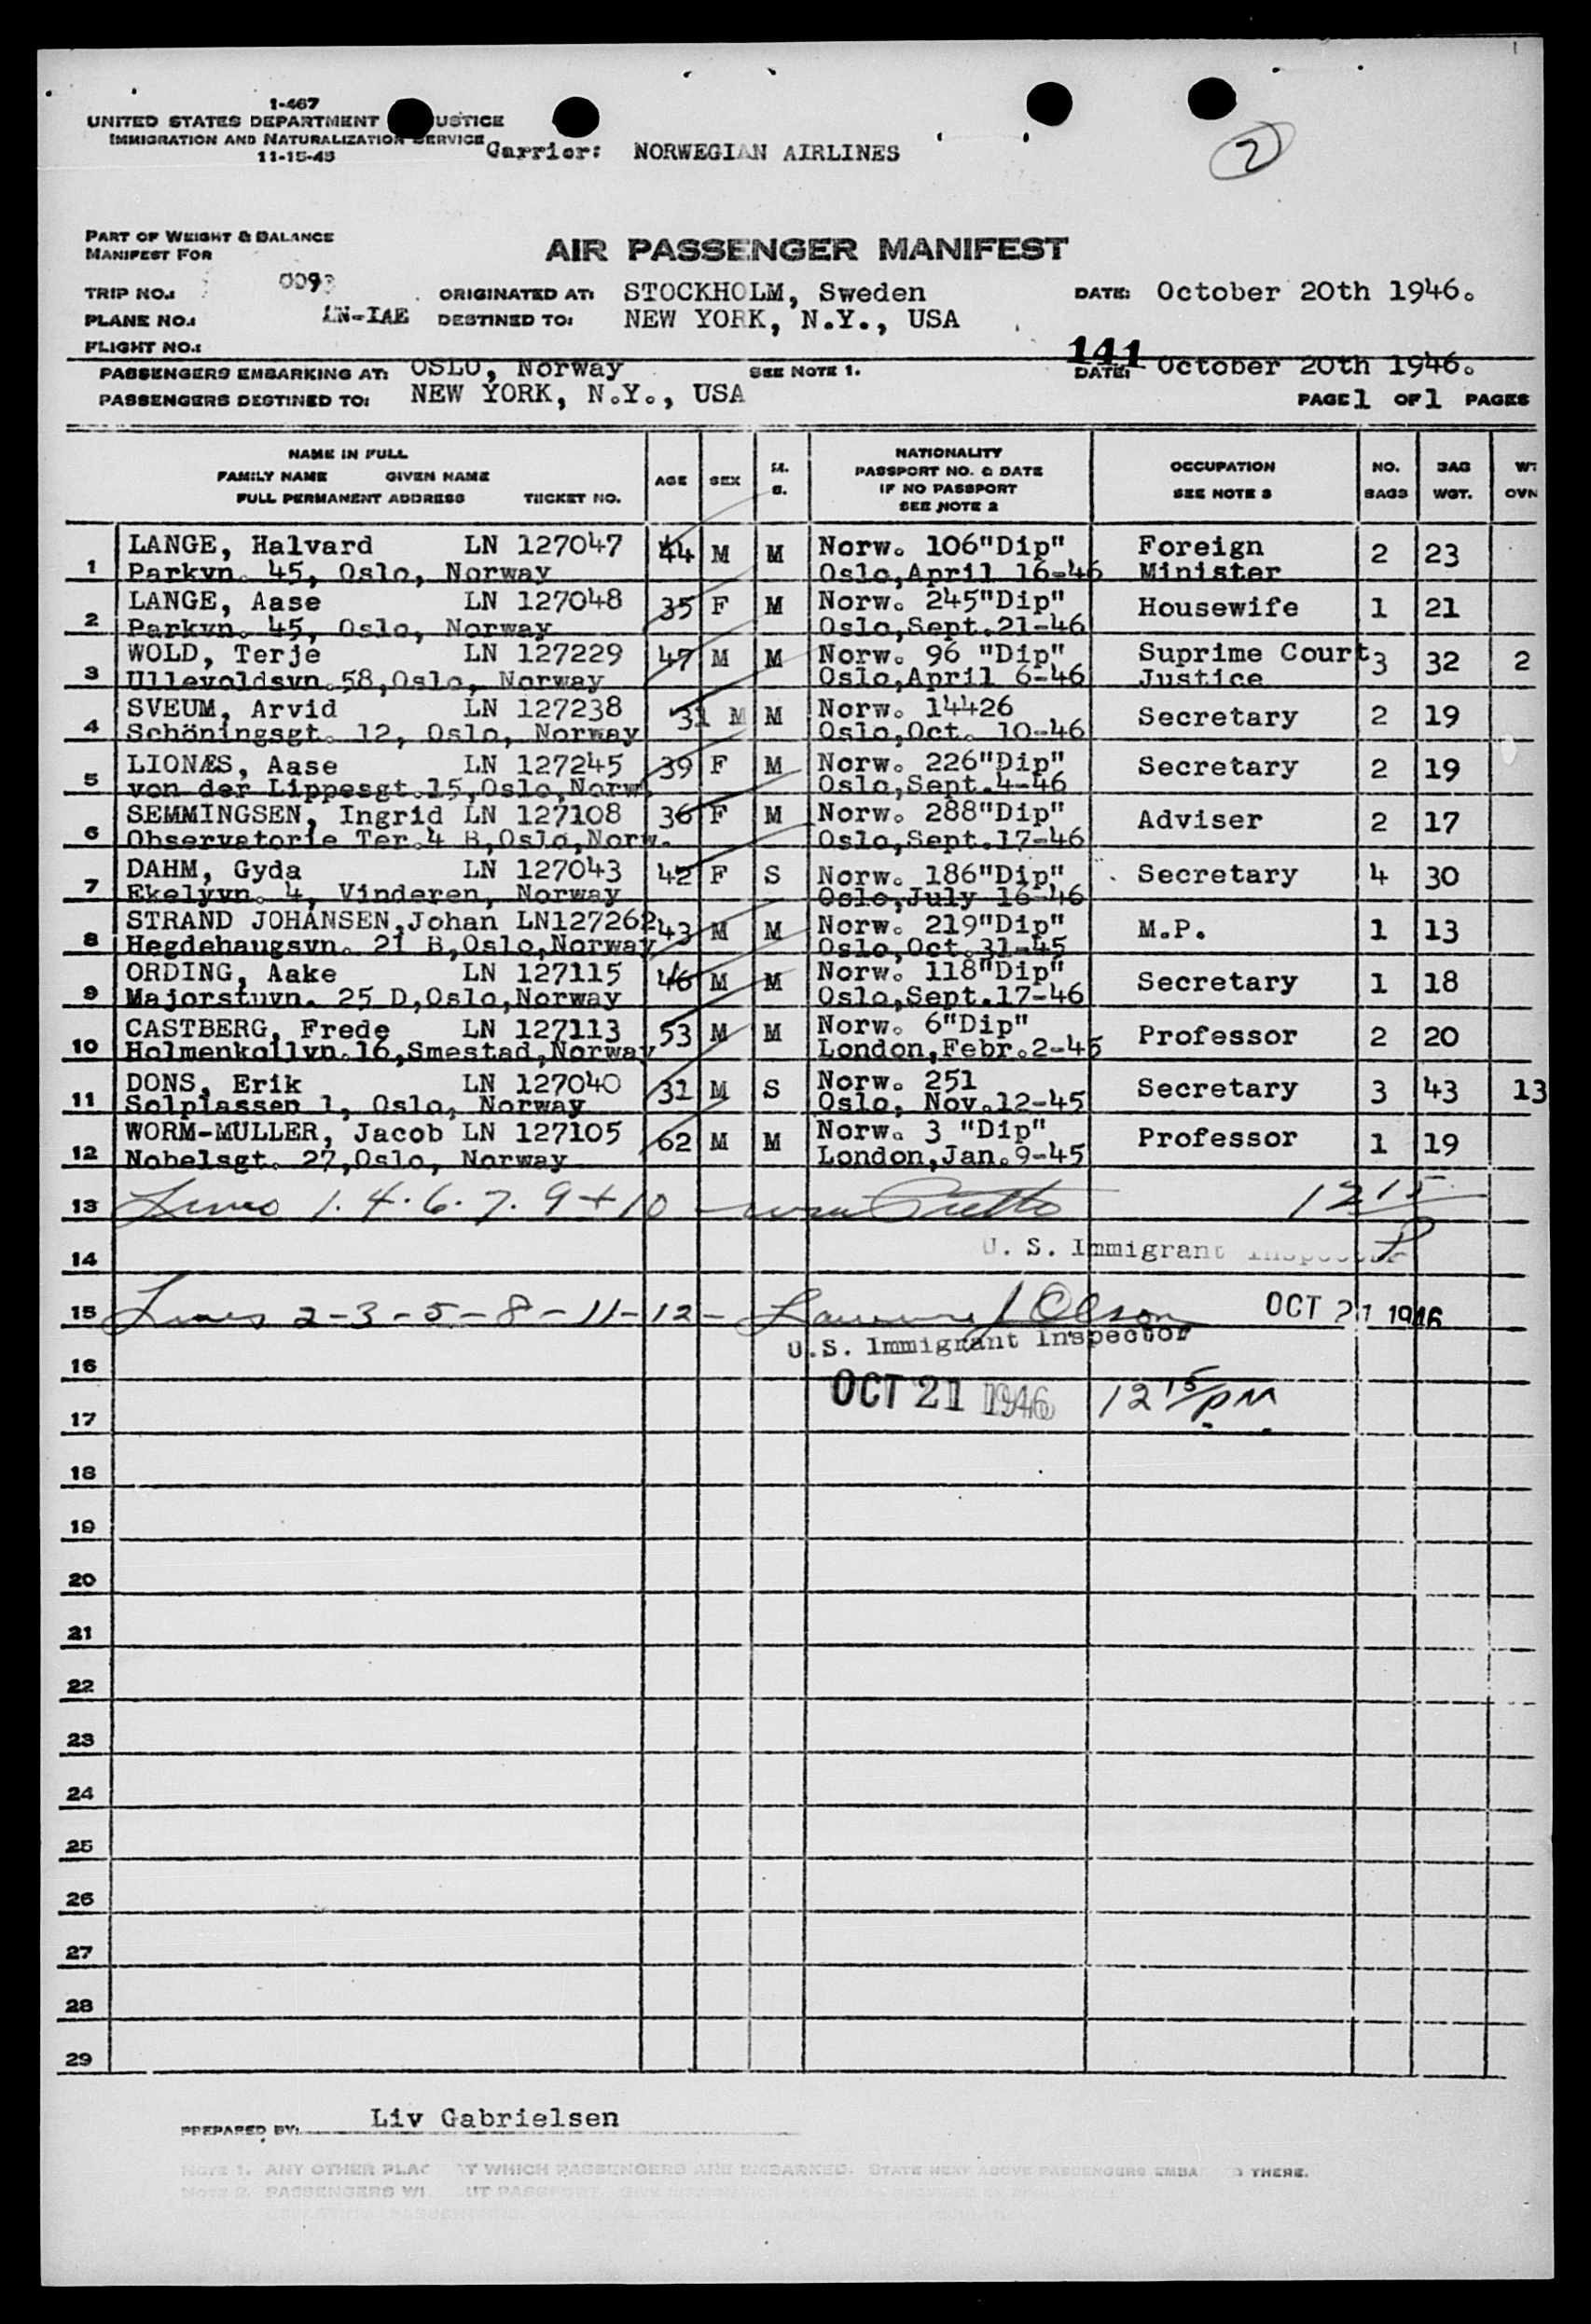 1-467
UNITED STATES DEPARTMENT USTICE
IMMIGRATION AND NATURALIZATION SERVICE
11-15-45
Carrier: NORWEGIAN AIRLINES
2
PART OF WEIGHT & BALANCE
MANIFEST FOR
AIR PASSENGER MANIFEST
TRIP NO.: 0093 ORIGINATED AT: STOCKHOLM, Sweden DATE: October 20th 1946.
PLANE NO.: LN-IAE DESTINED TO: NEW YORK, N.Y., USA
FLIGHT NO.:
141
PASSENGERS EMBARKING AT: OSLO, Norway SEE NOTE 1. DATE: October 20th 1946.
PASSENGERS DESTINED TO: NEW YORK, N.Y., USA PAGE 1 OF 1 PAGES
NAME IN FULL
FAMILY NAME GIVEN NAME
FULL PERMANENT ADDRESS TICKET NO.
AGE SEX M. S.
NATIONALITY
PASSPORT NO. & DATE
IF NO PASSPORT
SEE NOTE 2
OCCUPATION
SEE NOTE 3
NO.
BAGS
BAG
WGT.
WT
OVN
1 LANGE, Halvard LN 127047 44 M M Norw. 106"Dip" Foreign 2 23
Parkvn. 45, Oslo, Norway Oslo,April 16-46 Minister
2 LANGE, Aase LN 127048 35 F M Norw. 245"Dip" Housewife 1 21
Parkvn. 45, Oslo, Norway Oslo,Sept.21-46
3 WOLD, Terje LN 127229 47 M M Norw. 96 "Dip" Suprime Court 3 32 2
Ullevoldsvn.58,Oslo, Norway Oslo,April 6-46 Justice
4 SVEUM, Arvid LN 127238 31 M M Norw. 14426 Secretary 2 19
Schöningsgt. 12, Oslo, Norway Oslo,Oct. 10-46
5 LIONÆS, Aase LN 127245 39 F M Norw. 226"Dip" Secretary 2 19
von der Lippesgt.15,Oslo,Norw. Oslo,Sept.4-46
6 SEMMINGSEN, Ingrid LN 127108 36 F M Norw. 288"Dip" Adviser 2 17
Observatorie Ter.4 B,Oslo,Norw. Oslo,Sept.17-46
7 DAHM, Gyda LN 127043 42 F S Norw. 186"Dip" Secretary 4 30
Ekelyvn. 4, Vinderen, Norway Oslo,July 16-46
8 STRAND JOHANSEN,Johan LN127262 43 M M Norw. 219"Dip" M.P. 1 13
Hegdehaugsvn. 21 B,Oslo,Norway Oslo,Oct.31-45
9 ORDING, Aake LN 127115 46 M M Norw. 118"Dip" Secretary 1 18
Majorstuvn. 25 D,Oslo,Norway Oslo,Sept.17-46
10 CASTBERG, Frede LN 127113 53 M M Norw. 6"Dip" Professor 2 20
Holmenkollvn.16,Smestad,Norway London,Febr.2-45
11 DONS, Erik LN 127040 31 M S Norw. 251 Secretary 3 43 13
Solplassen 1, Oslo, Norway Oslo, Nov.12-45
12 WORM-MULLER, Jacob LN 127105 62 M M Norw. 3 "Dip" Professor 1 19
Nobelsgt. 27,Oslo, Norway London,Jan.9-45
13 Lines 1. 4. 6. 7. 9 + 10 12 15
14 U. S. Immigrant Inspector P
15 Lines 2-3-5-8-11-12- Olson OCT 21 1946
U.S. Immigrant Inspector
16
OCT 21 1946 12 15/PM
17
18
19
20
21
22
23
24
25
26
27
28
29
PREPARED BY: Liv Gabrielsen
NOTE 1. ANY OTHER PLAC T WHICH PASSENGERS ARE EMBARKED. STATE NEXT ABOVE PASSENGERS EMBA D THERE.
NOTE 2. PASSENGERS WI UT PASSPORT